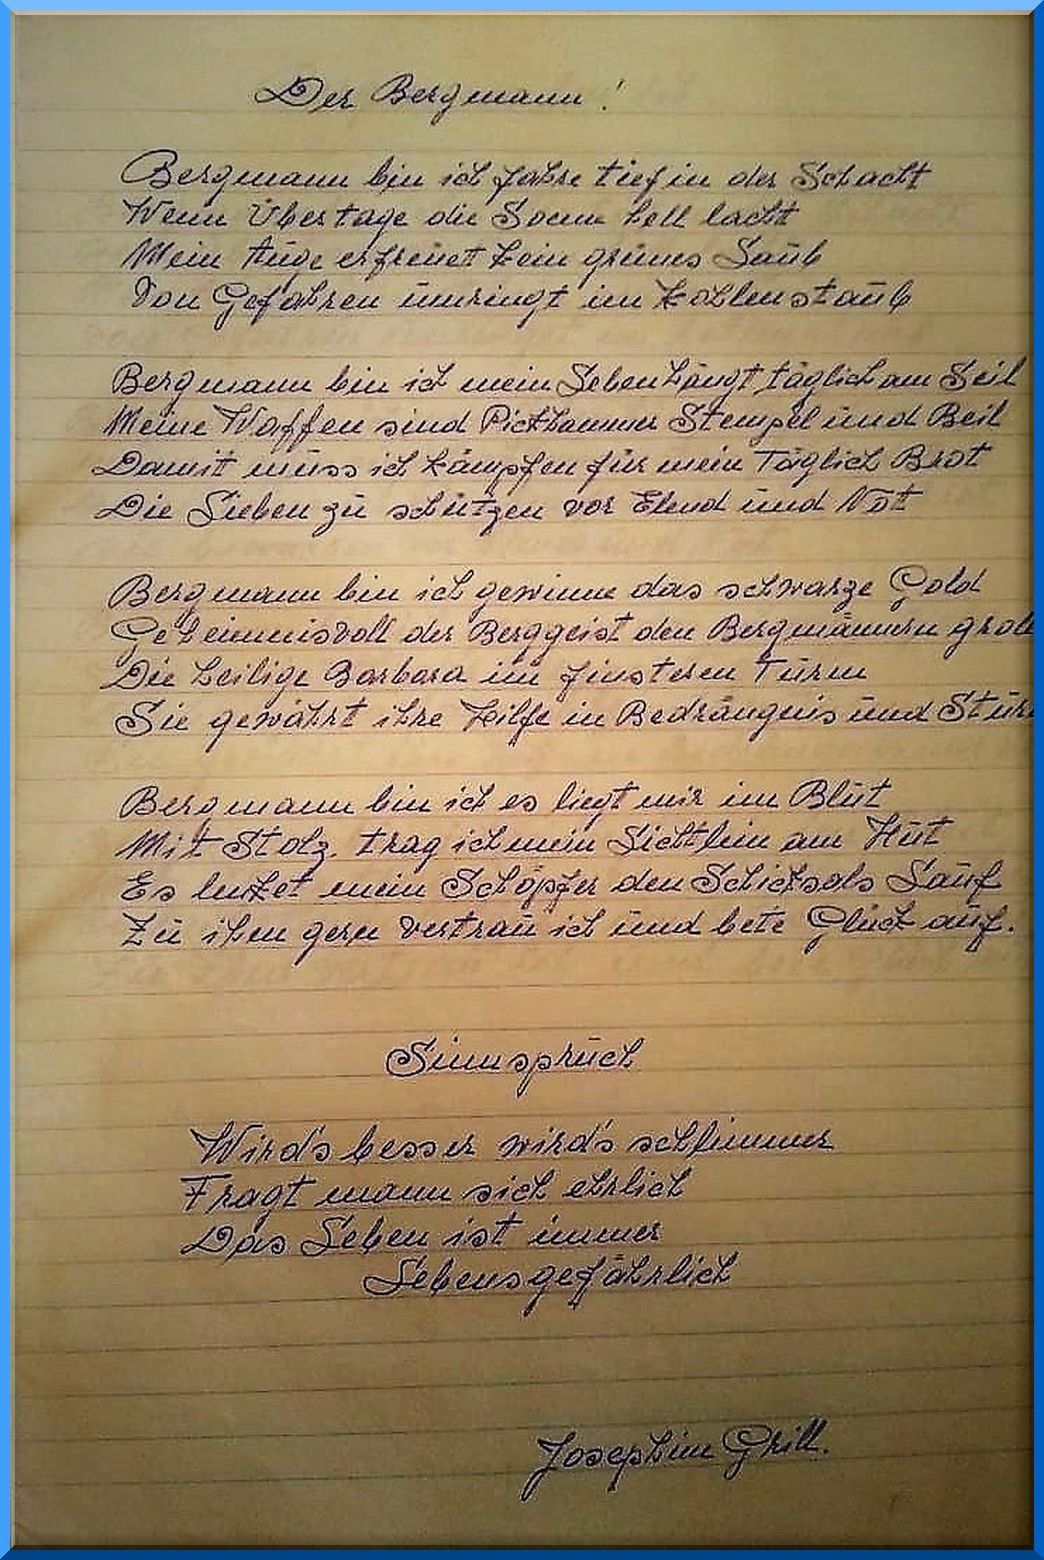 Der Bergmann!
Bergmann bin ich fahre tief in der Schacht
Wenn Übertage die Sonne hell lacht
Mein Auge erfreuet kein grünes Laub
Von Gefahren umringt im Kohlenstaub
Bergmann bin ich mein Leben hängt täglich am Seil
Meine Waffen sind Pickhammer Stempel und Beil
Damit muss ich kämpfen für mein Täglich Brot
Die Lieben zu schützen vor Elend und Not
Bergmann bin ich gewinne das schwarze Gold
Geheimnisvoll der Berggeist den Bergmännern groll
Die heilige Barbara im finsteren Turm
Sie gewährt ihre Hilfe in Bedrängnis und Stur
Bergmann bin ich es liegt mir im Blut
Mit Stolz trag ich mein Lichtlein am Hut
Es lenket mein Schöpfer den Schicksals Lauf
Zu ihm gern vertrau ich und bete Glück auf.
Sinnspruch
Wird's besser wird's schlimmer
Fragt mann sich ehrlich
Das Leben ist immer
Lebensgefährlich
Josephine Grill.